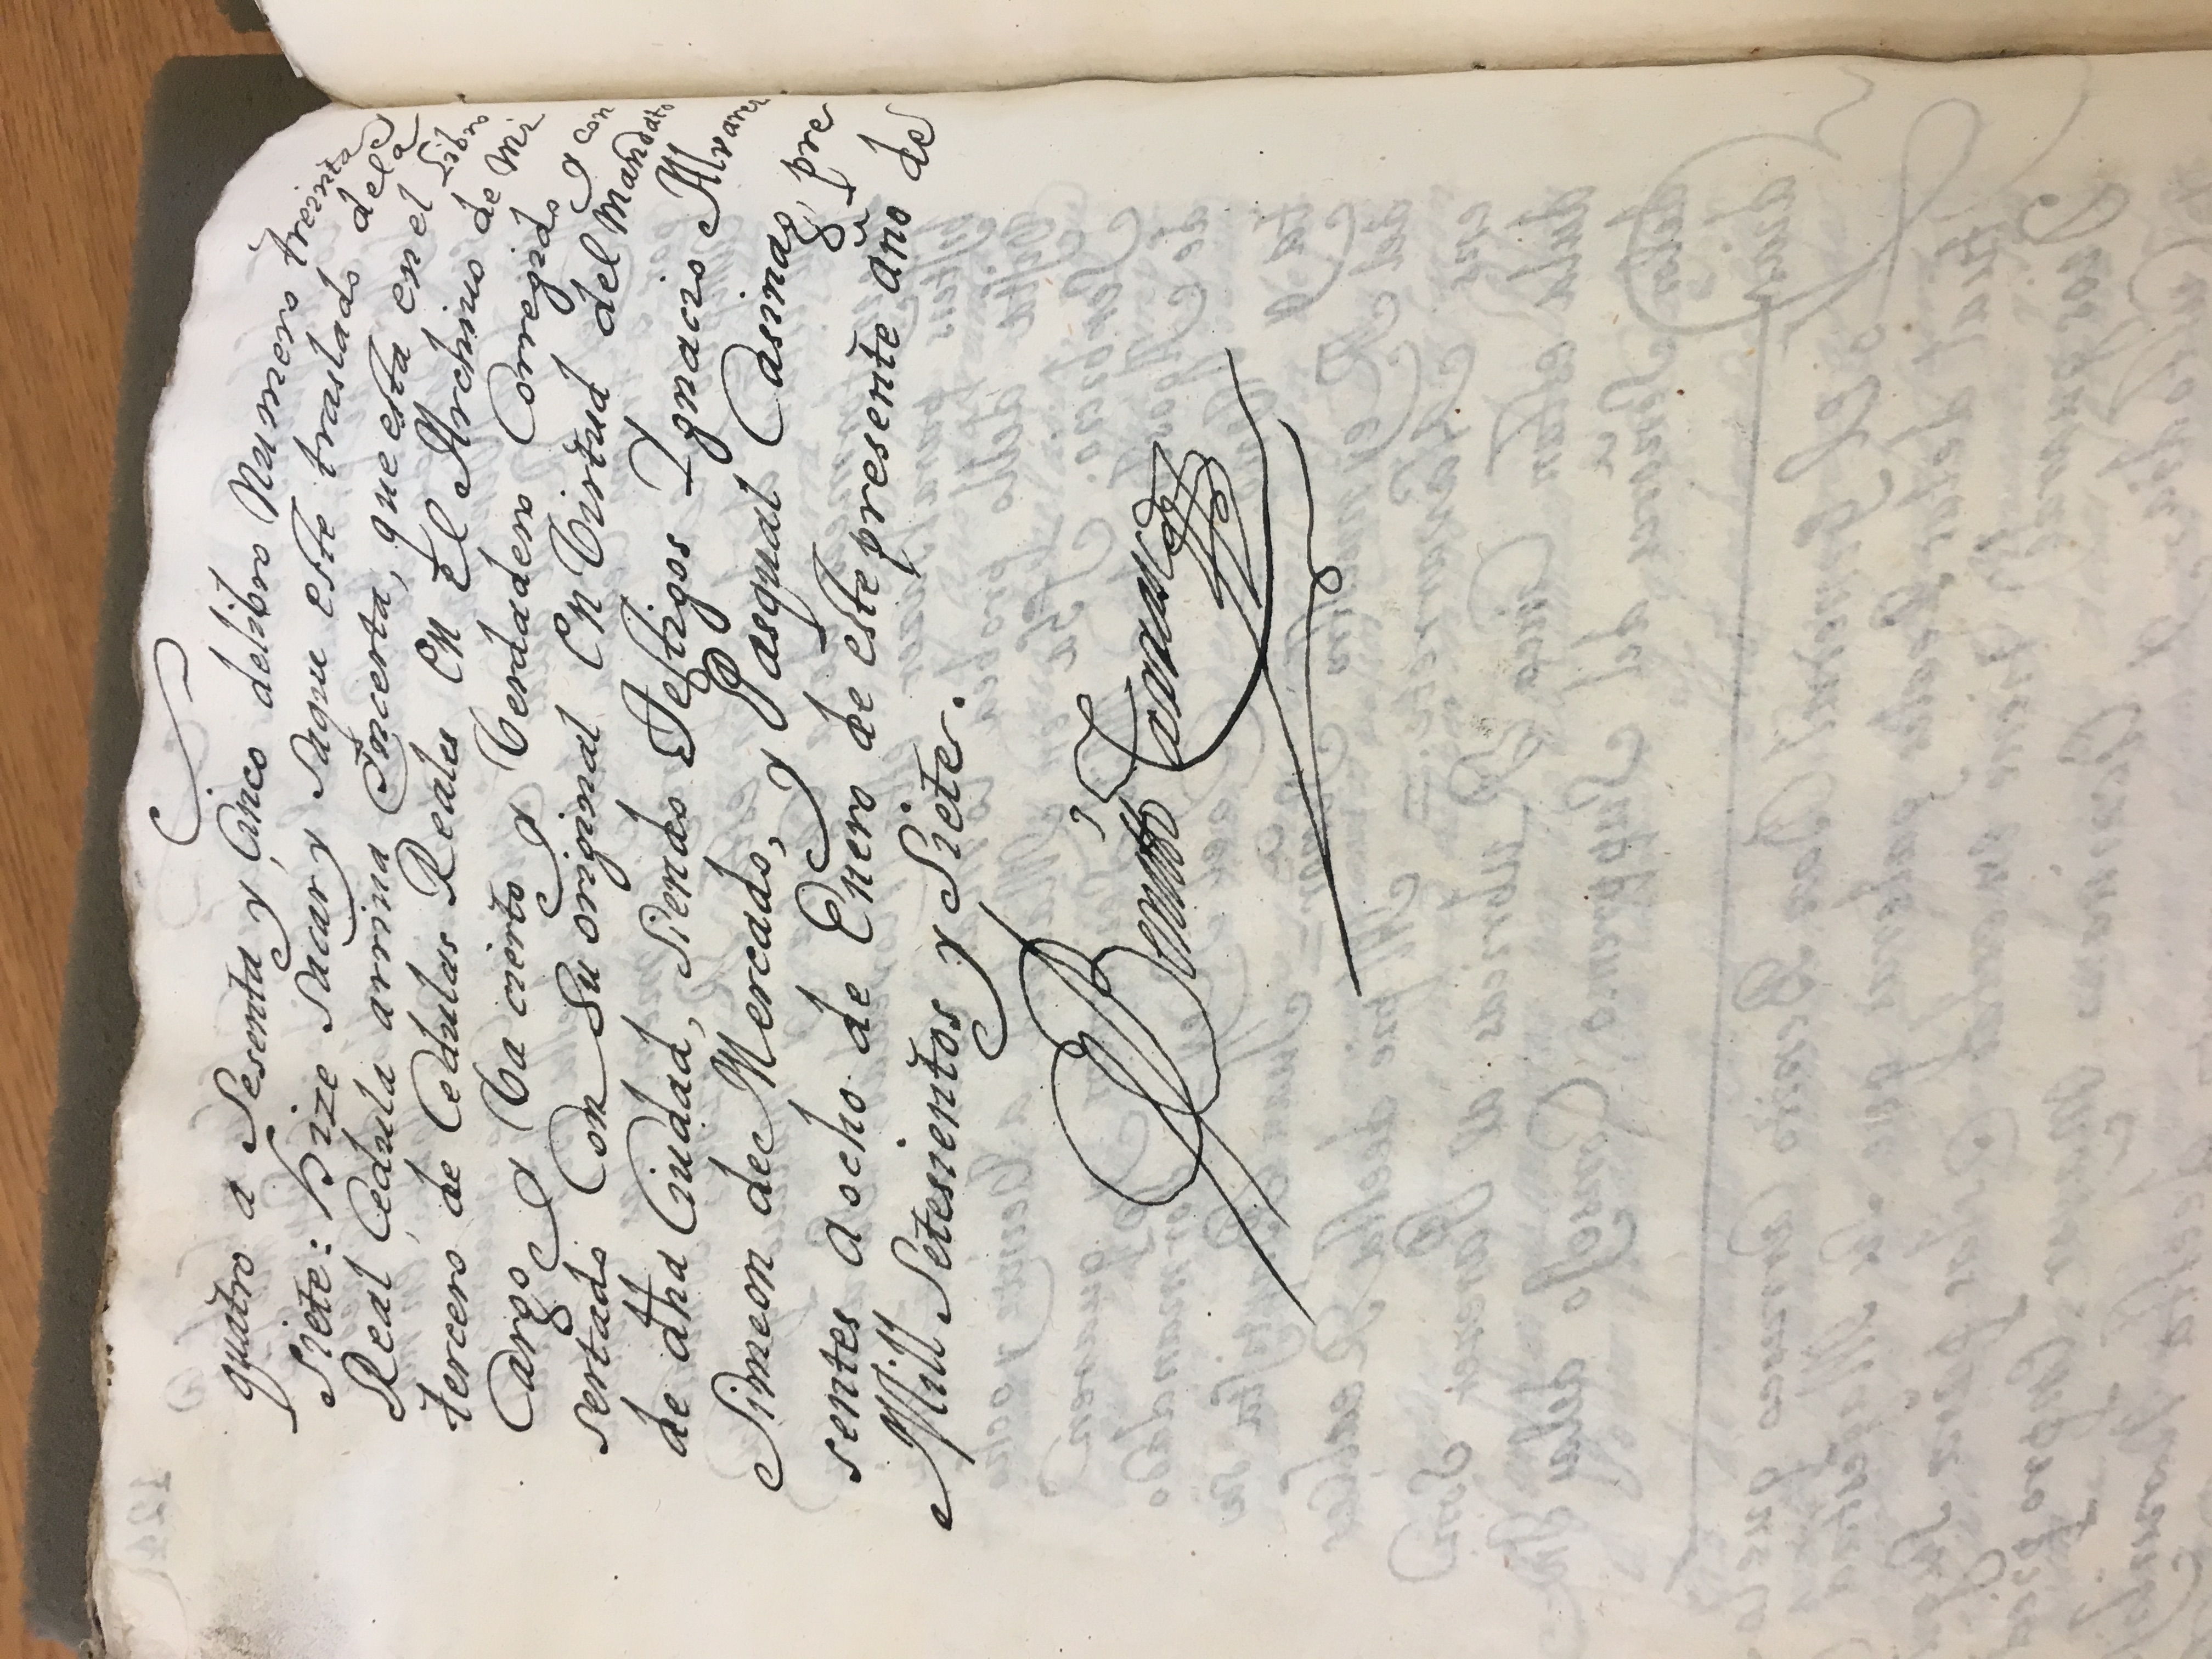 quatro a Sesenta y Cinco delibro Numero treinta
Siete: hize Sacar y Saque este traslado dela
Real Cedula arriua Incerta, que esta en el Libro
tercero de Cedulas Reales en el Archiuo de mi
Cargo, y Va cierto y Verdadero Corregido y con
sertado Con Su original en Virtud del Mandato
de dha Ciudad, Siendo Testigos Ygnacio Alvares
Simeon de Mercado, y Pasqual Casinag, pre
sentes a ocho de Enero de este presente año de
Mill Setesientos y Siete.
Benitto Carrasco